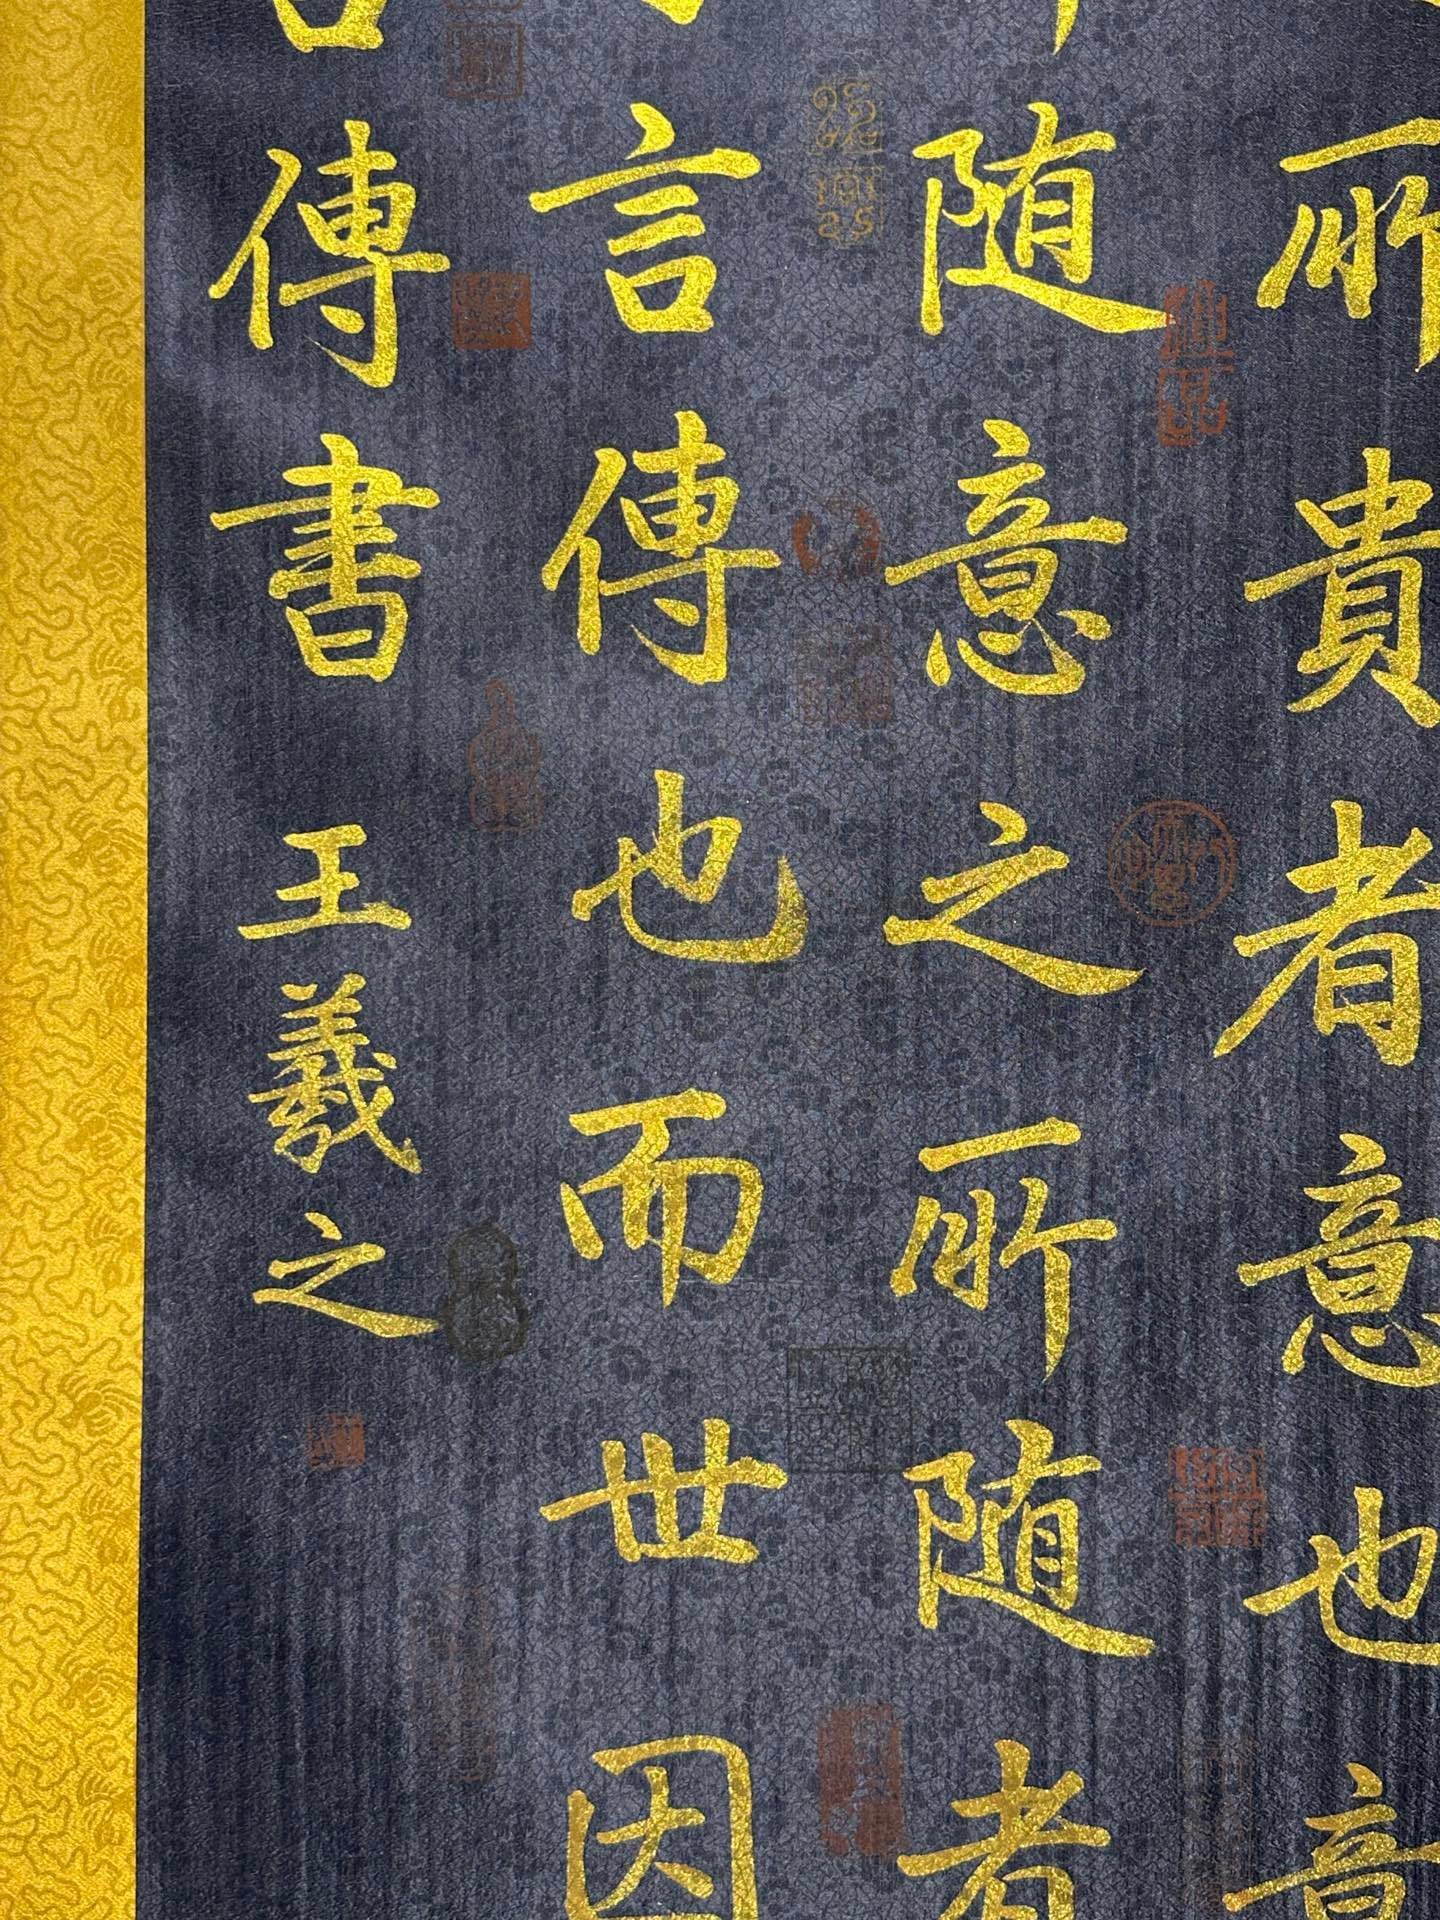 所貴者意也意
随意之所随者
言傳也而世因
傳書
王羲之